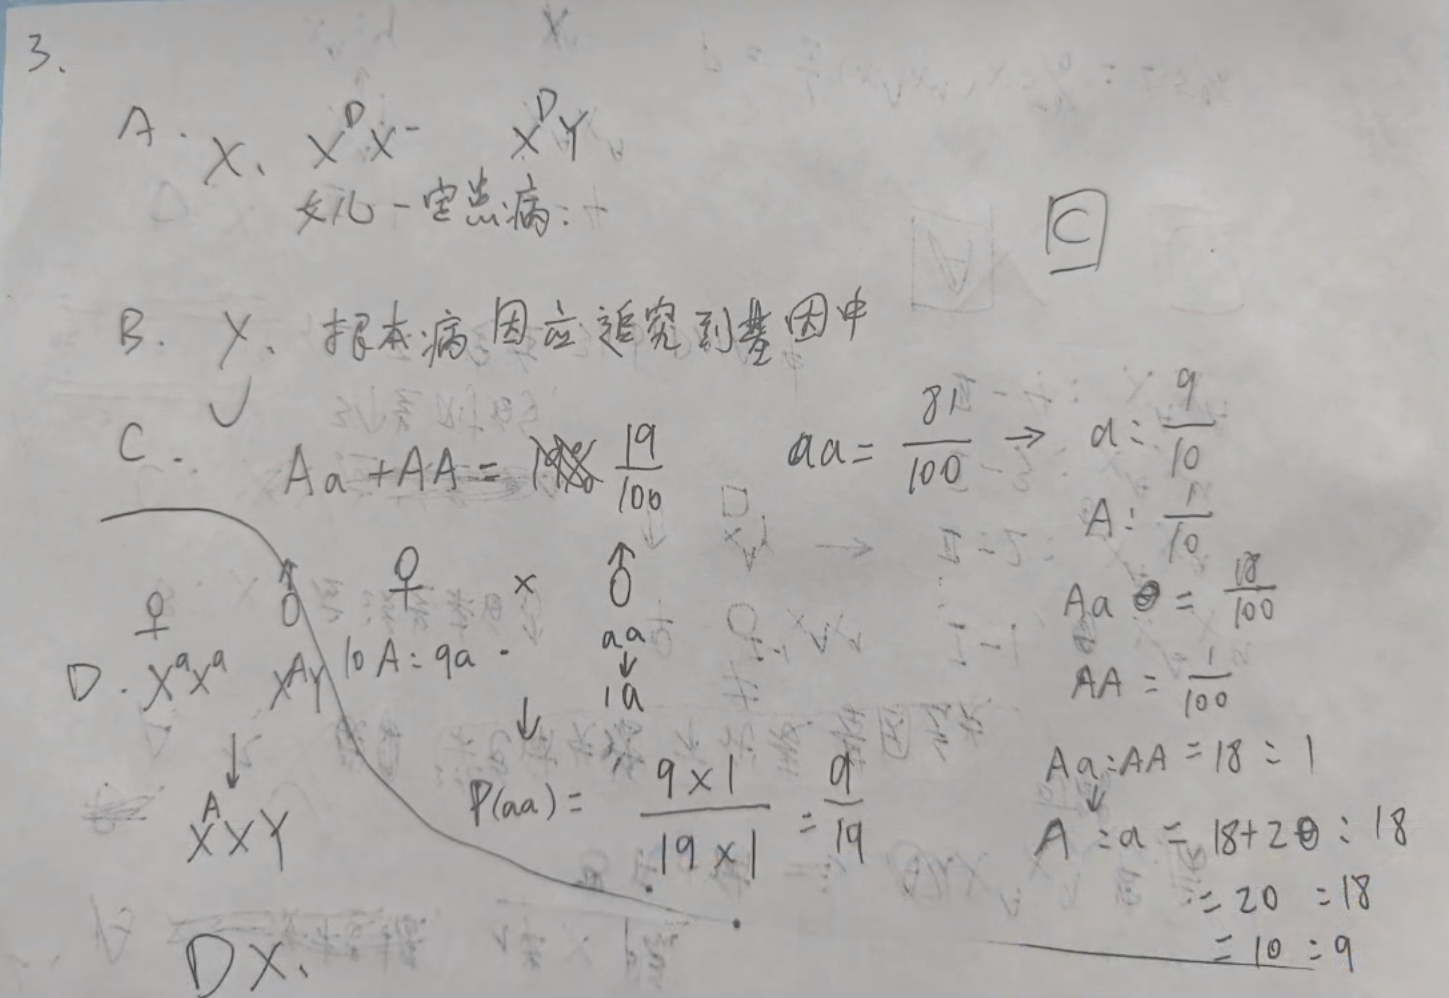 3.
A. X. X^D X^- X^D Y
女儿一定患病
C
B. X. 根本病因应追究到基因中
C. √ Aa + AA = 19/100
aa = 81/100 → a: 9/10
A: 1/10
Aa = 18/100
AA = 1/100
Aa:AA = 18:1
↓
A:a = 18+2:18
= 20:18
= 10:9
♀ × ♂
10A:9a · aa
↓
1a
↓
P(aa) = 9×1/19×1 = 9/19
♀ ♂
D. X^a X^a X^A Y
↓
X^A X Y
D X.